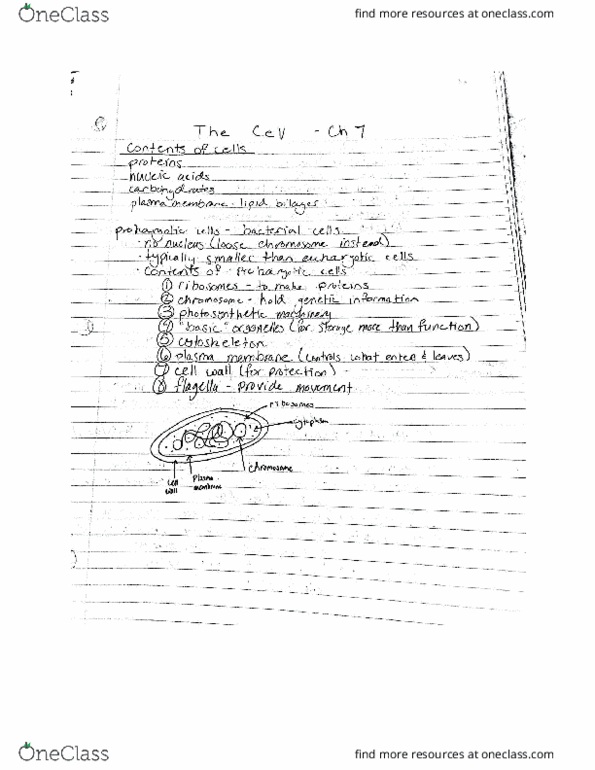 OneClass
find more resources at oneclass.com
The Cell - Ch 7
Contents of cells
proteins
nucleic acids
carbohydrates
plasma membrane - lipid bilayer
prokaryotic cells - bacterial cells
· no nucleus (loose chromosome instead)
· typically smaller than eukaryotic cells
· Contents of prokaryotic cells
① ribosomes - to make proteins
② chromosome - hold genetic information
③ photosynthetic machinery
④ "basic" organelles (for storage more than function)
⑤ cytoskeleton
⑥ plasma membrane (controls what enters & leaves)
⑦ cell wall (for protection)
⑧ flagella - provide movement
ribosomes
cytoplasm
chromosome
cell wall
plasma membrane
OneClass
find more resources at oneclass.com